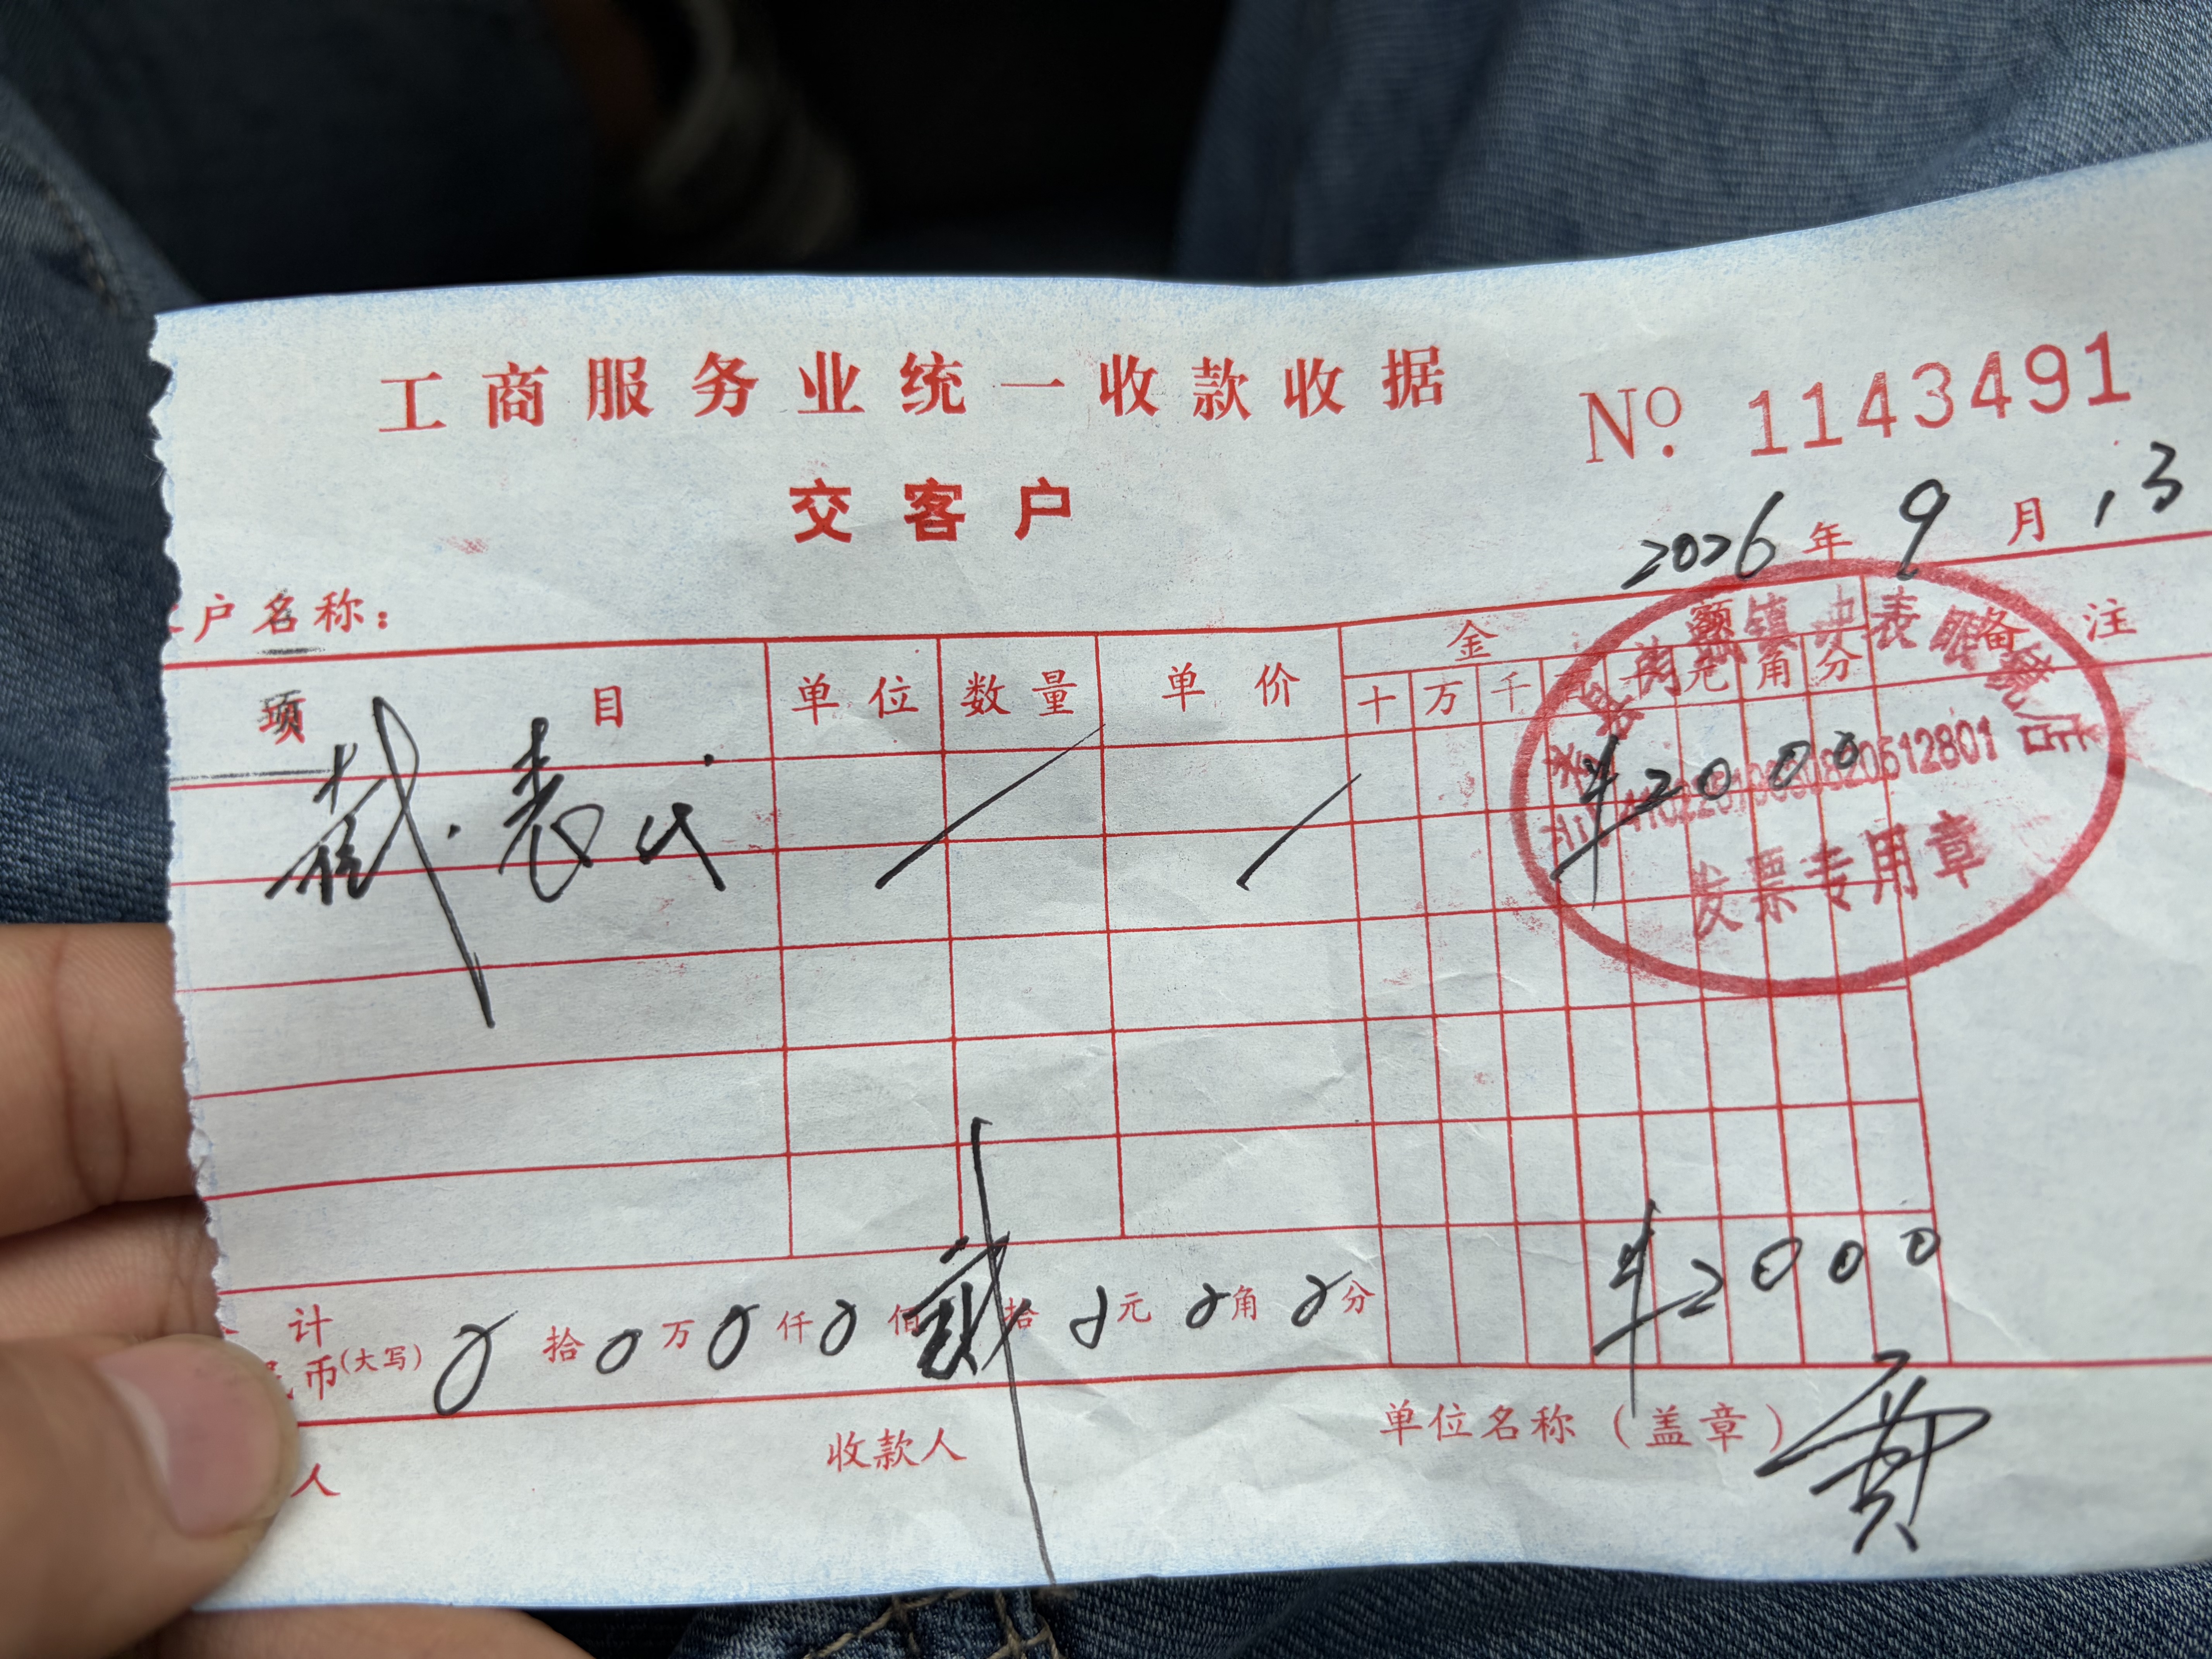 工商服务业统一收款收据
No. 1143491
交客户
2026年9月13
户名称:
金额 备注
项目 单位 数量 单价 十万千百元角分
截.表代 ¥2000
发票专用章
计
币(大写) 0拾0万0仟0佰贰拾0元0角0分 ¥2000
人 收款人 单位名称(盖章) 贾